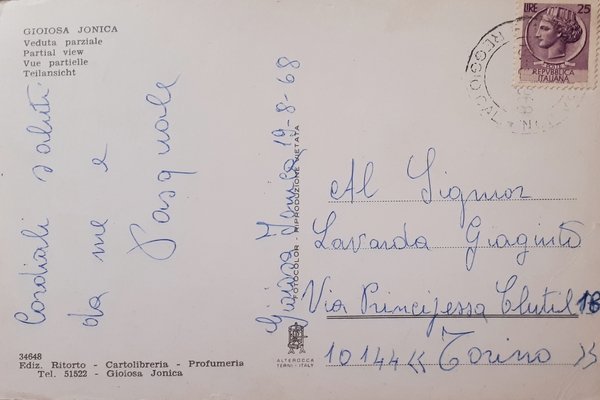 GIOIOSA JONICA
Veduta parziale
Partial view
Vue partielle
Teilansicht
Cordiali saluti
da me e
Pasquale
34648
Ediz. Ritorto - Cartolibreria - Profumeria
Tel. 51522 - Gioiosa Jonica
Gioiosa Jonica 19-8-68
FOTOCOLOR - RIPRODUZIONE VIETATA
ALTEROCCA
TERNI - ITALY
LIRE 25
REPVBBLICA
ITALIANA
REGGIO CAL
Al Signor
Lavarda Giaginto
Via Principessa Clutil 18
10144 << Torino >>